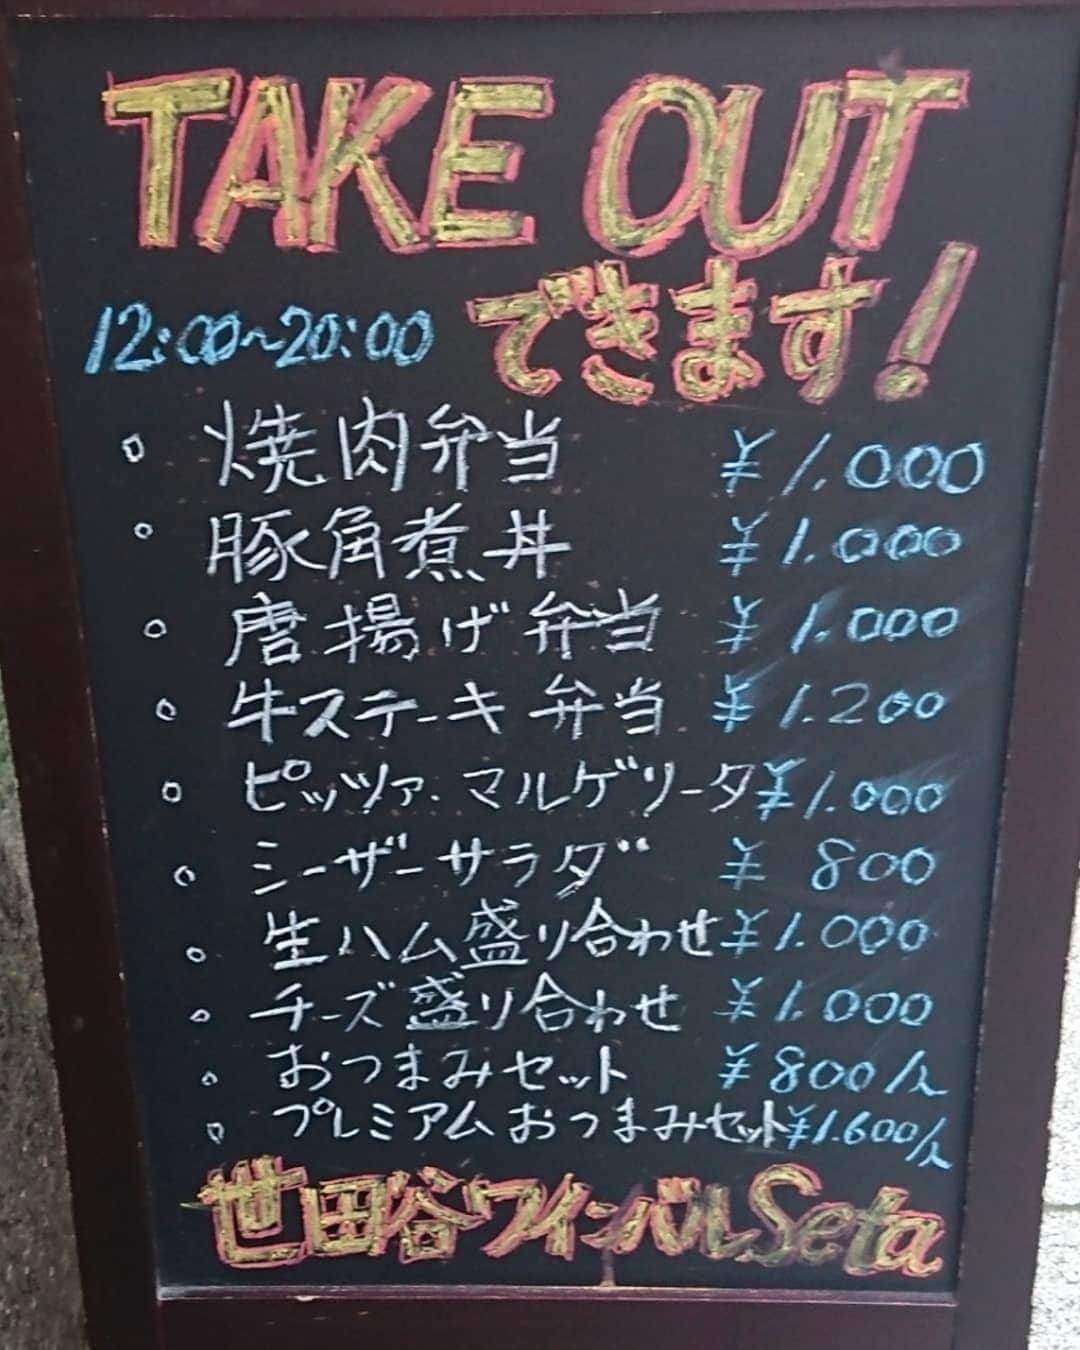 TAKE OUT
できます!
12:00~20:00
。焼肉弁当 ¥1.000
。豚角煮丼 ¥1.000
。唐揚げ弁当 ¥1.000
。牛ステーキ弁当 ¥1.200
。ピッツァ.マルゲリータ ¥1.000
。シーザーサラダ ¥800
。生ハム盛り合わせ ¥1.000
。チーズ盛り合わせ ¥1.000
。おつまみセット ¥800/人
。プレミアムおつまみセット ¥1.600/人
世田谷ワインバルSeta